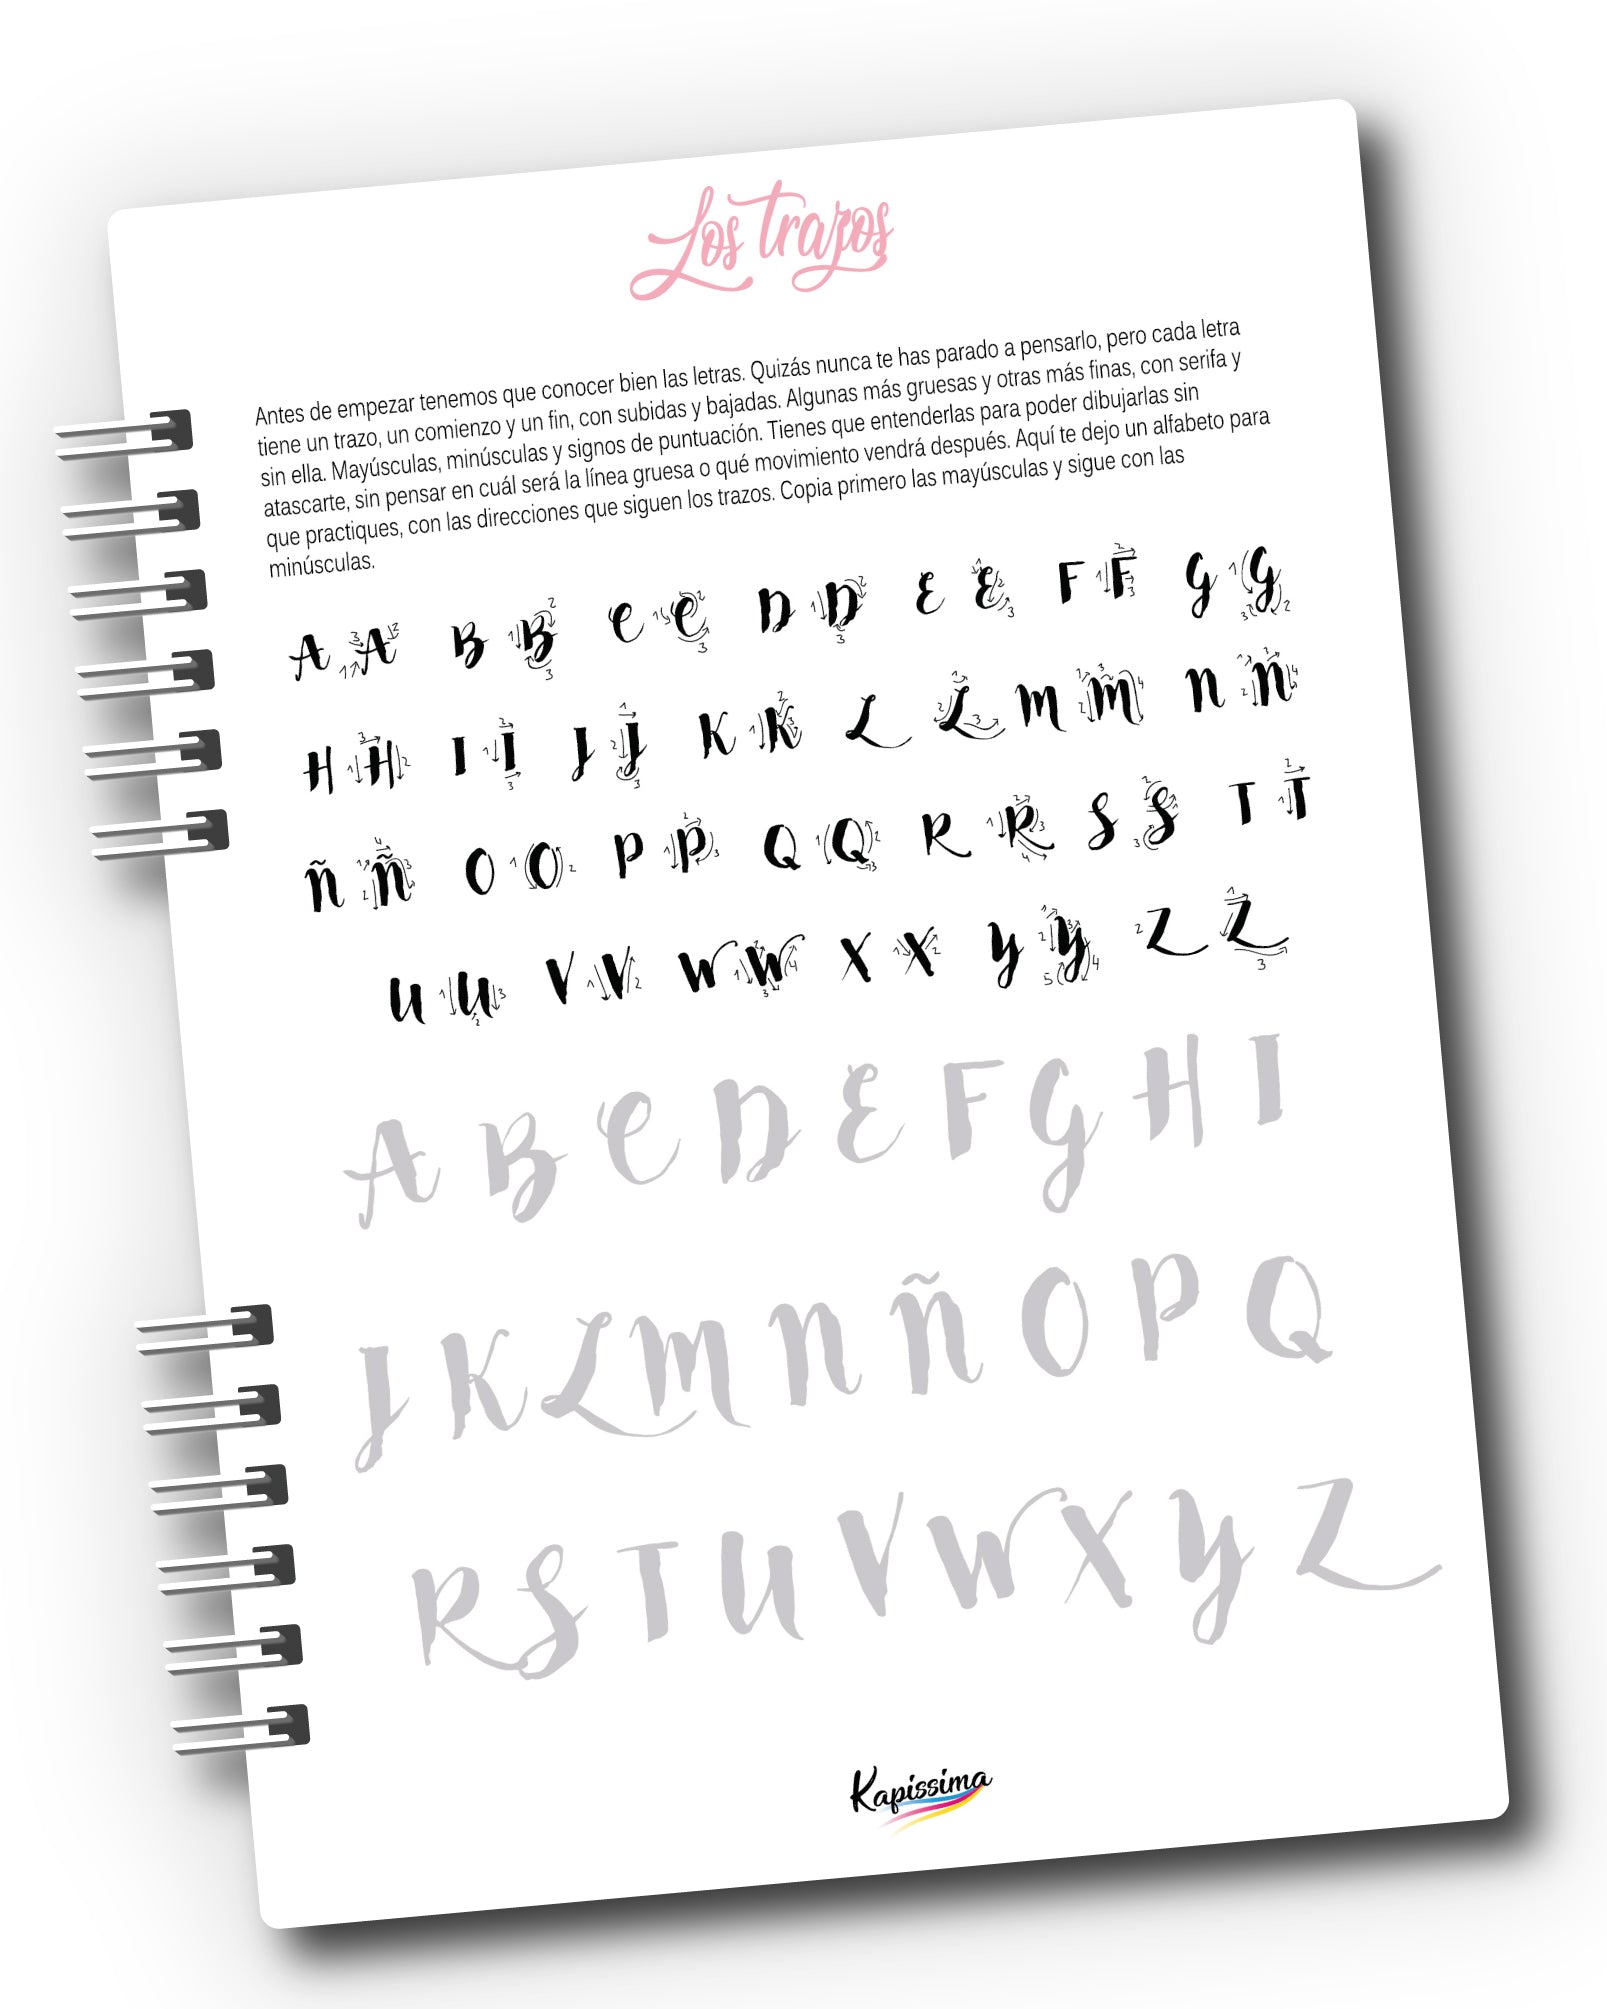 Los trazos
Antes de empezar tenemos que conocer bien las letras. Quizás nunca te has parado a pensarlo, pero cada letra
tiene un trazo, un comienzo y un fin, con subidas y bajadas. Algunas más gruesas y otras más finas, con serifa y
sin ella. Mayúsculas, minúsculas y signos de puntuación. Tienes que entenderlas para poder dibujarlas sin
atascarte, sin pensar en cuál será la línea gruesa o qué movimiento vendrá después. Aquí te dejo un alfabeto para
que practiques, con las direcciones que siguen los trazos. Copia primero las mayúsculas y sigue con las
minúsculas.
A A B B C C D D E E F F G G
H H I I J J K K L L M M N N
Ñ Ñ O O P P Q Q R R S S T T
U U V V W W X X Y Y Z Z
A B C D E F G H I
J K L M N Ñ O P Q
R S T U V W X Y Z
Kapissima